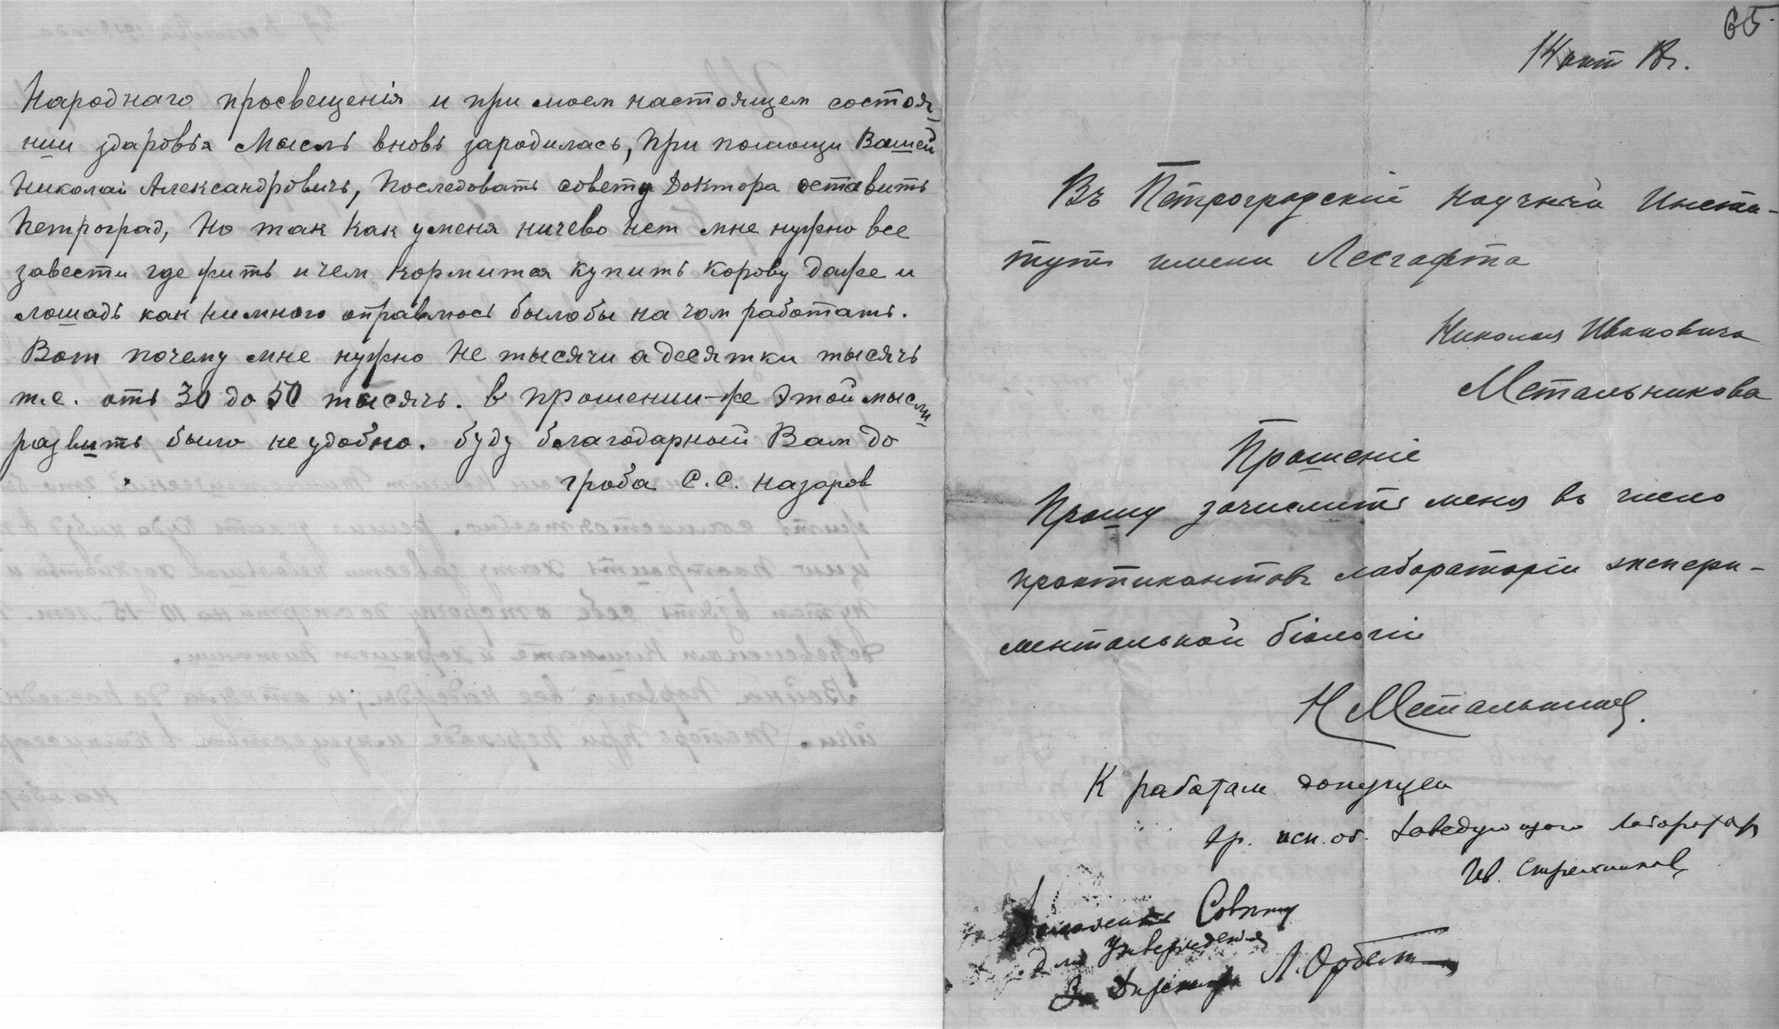 Народнаго просвещенія и при моем настоящем состоя-
нии здаровья мысль вновь зародилась, при помощи Вашей
Николай Александровичь, последовать совету Доктора оставить
Петроград, но так как уменя ничево нет мне нужно все
завести где жить ичем кормится купить корову даже и
лошадь как нимного оправлюсь былобы на чом работать.
Вот почему мне нужно не тысячи а десятки тысячь
т.е. оть 30 до 50 тысячь. в прошении-же этой мысли
развить было не удобно. буду благодарный Вам до
гроба С.С. Назаров
65.
14 окт 18г.
Въ Петроградскій Научный Инсти-
тутъ имени Лесгафта
Николая Ивановича
Метальникова
Прошеніе
Прошу зачислить меня въ число
практикантовъ лабораторіи экспери-
ментальной біологіи
Н Метальников.
К работам допущен
Вр. исп. об. Заведующего Лаборатор
Ив. Стрельников
Совету
для Утверждения
За Директора Л. Орбели